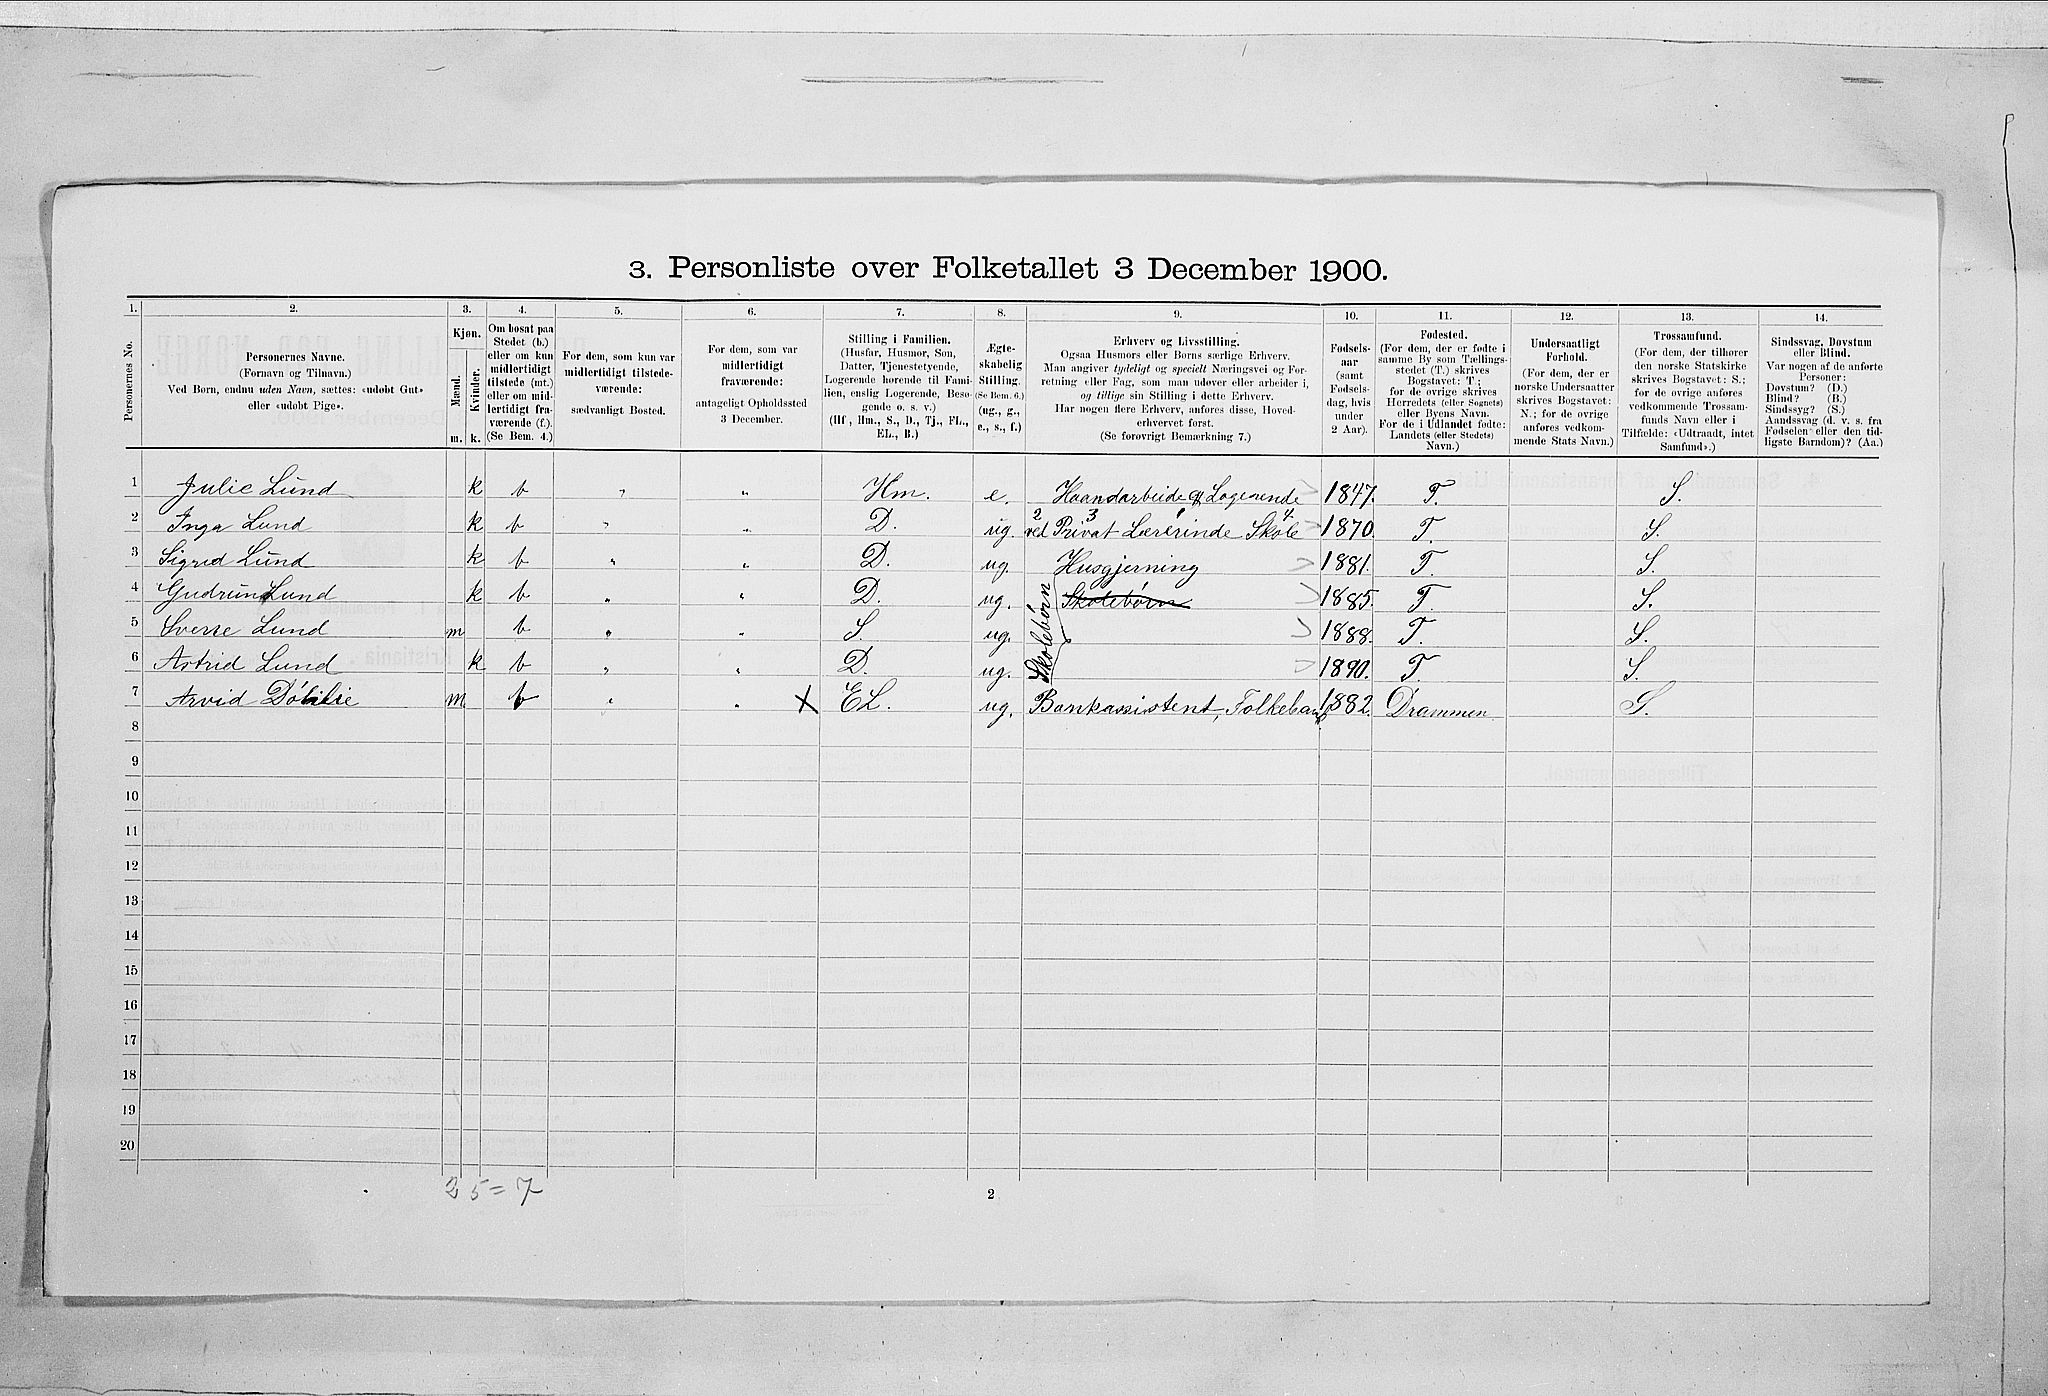 3. Personliste over Folketallet 3 December 1900.
1. 2. 3. 4. 5. 6. 7. 8. 9. 10. 11. 12. 13. 14.
Personernes No.
Personernes Navne.
(Fornavn og Tilnavn.)
Ved Børn, endnu uden Navn, sættes: «udøbt Gut»
eller «udøbt Pige».
Kjøn.
Mænd.
Kvinder.
m. k.
Om bosat paa
Stedet (b.)
eller om kun
midlertidigt
tilstede (mt.)
eller om mid-
lertidigt fra-
værende (f.).
(Se Bem. 4.)
For dem, som kun var
midlertidigt tilstede-
værende:
sædvanligt Bosted.
For dem, som var
midlertidigt
fraværende:
antageligt Opholdssted
3 December.
Stilling i Familien.
(Husfar, Husmor, Søn,
Datter, Tjenestetyende,
Logerende hørende til Fami-
lien, enslig Logerende, Besø-
gende o. s. v.)
(Hf, Hm., S., D., Tj., FL.,
EL., B.)
Ægte-
skabelig
Stilling.
(Se Bem. 6.)
(ug., g.,
e., s., f.)
Erhverv og Livsstilling.
Ogsaa Husmors eller Børns særlige Erhverv.
Man angiver tydeligt og specielt Næringsvei og For-
retning eller Fag, som man udøver eller arbeider i,
og tillige sin Stilling i dette Erhverv.
Har nogen flere Erhverv, anføres disse, Hoved-
erhvervet først.
(Se forøvrigt Bemærkning 7.)
Fødsels-
aar
(samt
Fødsels-
dag, hvis
under
2 Aar).
Fødested.
(For dem, der er fødte i
samme By som Tællings-
stedet (T.) skrives
Bogstavet: T;
for de øvrige skrives
Herredets (eller Sognets)
eller Byens Navn.
For de i Udlandet fødte:
Landets (eller Stedets)
Navn.)
Undersaatligt
Forhold.
(For dem, der er
norske Undersaatter
skrives Bogstavet:
N.; for de øvrige
anføres vedkom-
mende Stats Navn.)
Trossamfund.
(For dem, der tilhører
den norske Statskirke
skrives Bogstavet: S.;
for de øvrige anføres
vedkommende Trossam-
funds Navn eller i
Tilfælde: «Udtraadt, intet
Samfund».)
Sindssvag, Døvstum
eller Blind.
Var nogen af de anførte
Personer:
Døvstum? (D.)
Blind? (B.)
Sindssyg? (S.)
Aandssvag (d. v. s. fra
Fødselen eller den tid-
ligste Barndom)? (Aa.)
1 Julie Lund k b " " Hm. e. Haandarbeide og Logerende 1847. T. S.
2 3 1 4.
2 Inga Lund k b " " D. ug. ved Privat Lærerinde Skole 1870. T. S.
3 Sigrid Lund k b " " D. ug. Husgjerning 1881. T. S.
4 Gudrun Lund k b " " D. ug. Skolebørn 1885. T. S.
Skolebørn
5 Sverre Lund m b " " S. ug. 1888. T. S.
6 Astrid Lund k b " " D. ug. 1890. T. S.
7 Arvid m b " " X EL. ug. Bankassistent, Folkebank 1882. Drammen S.
8
9
10
11
12
13
14
15
16
17
18
19
20
2 5 = 7
2